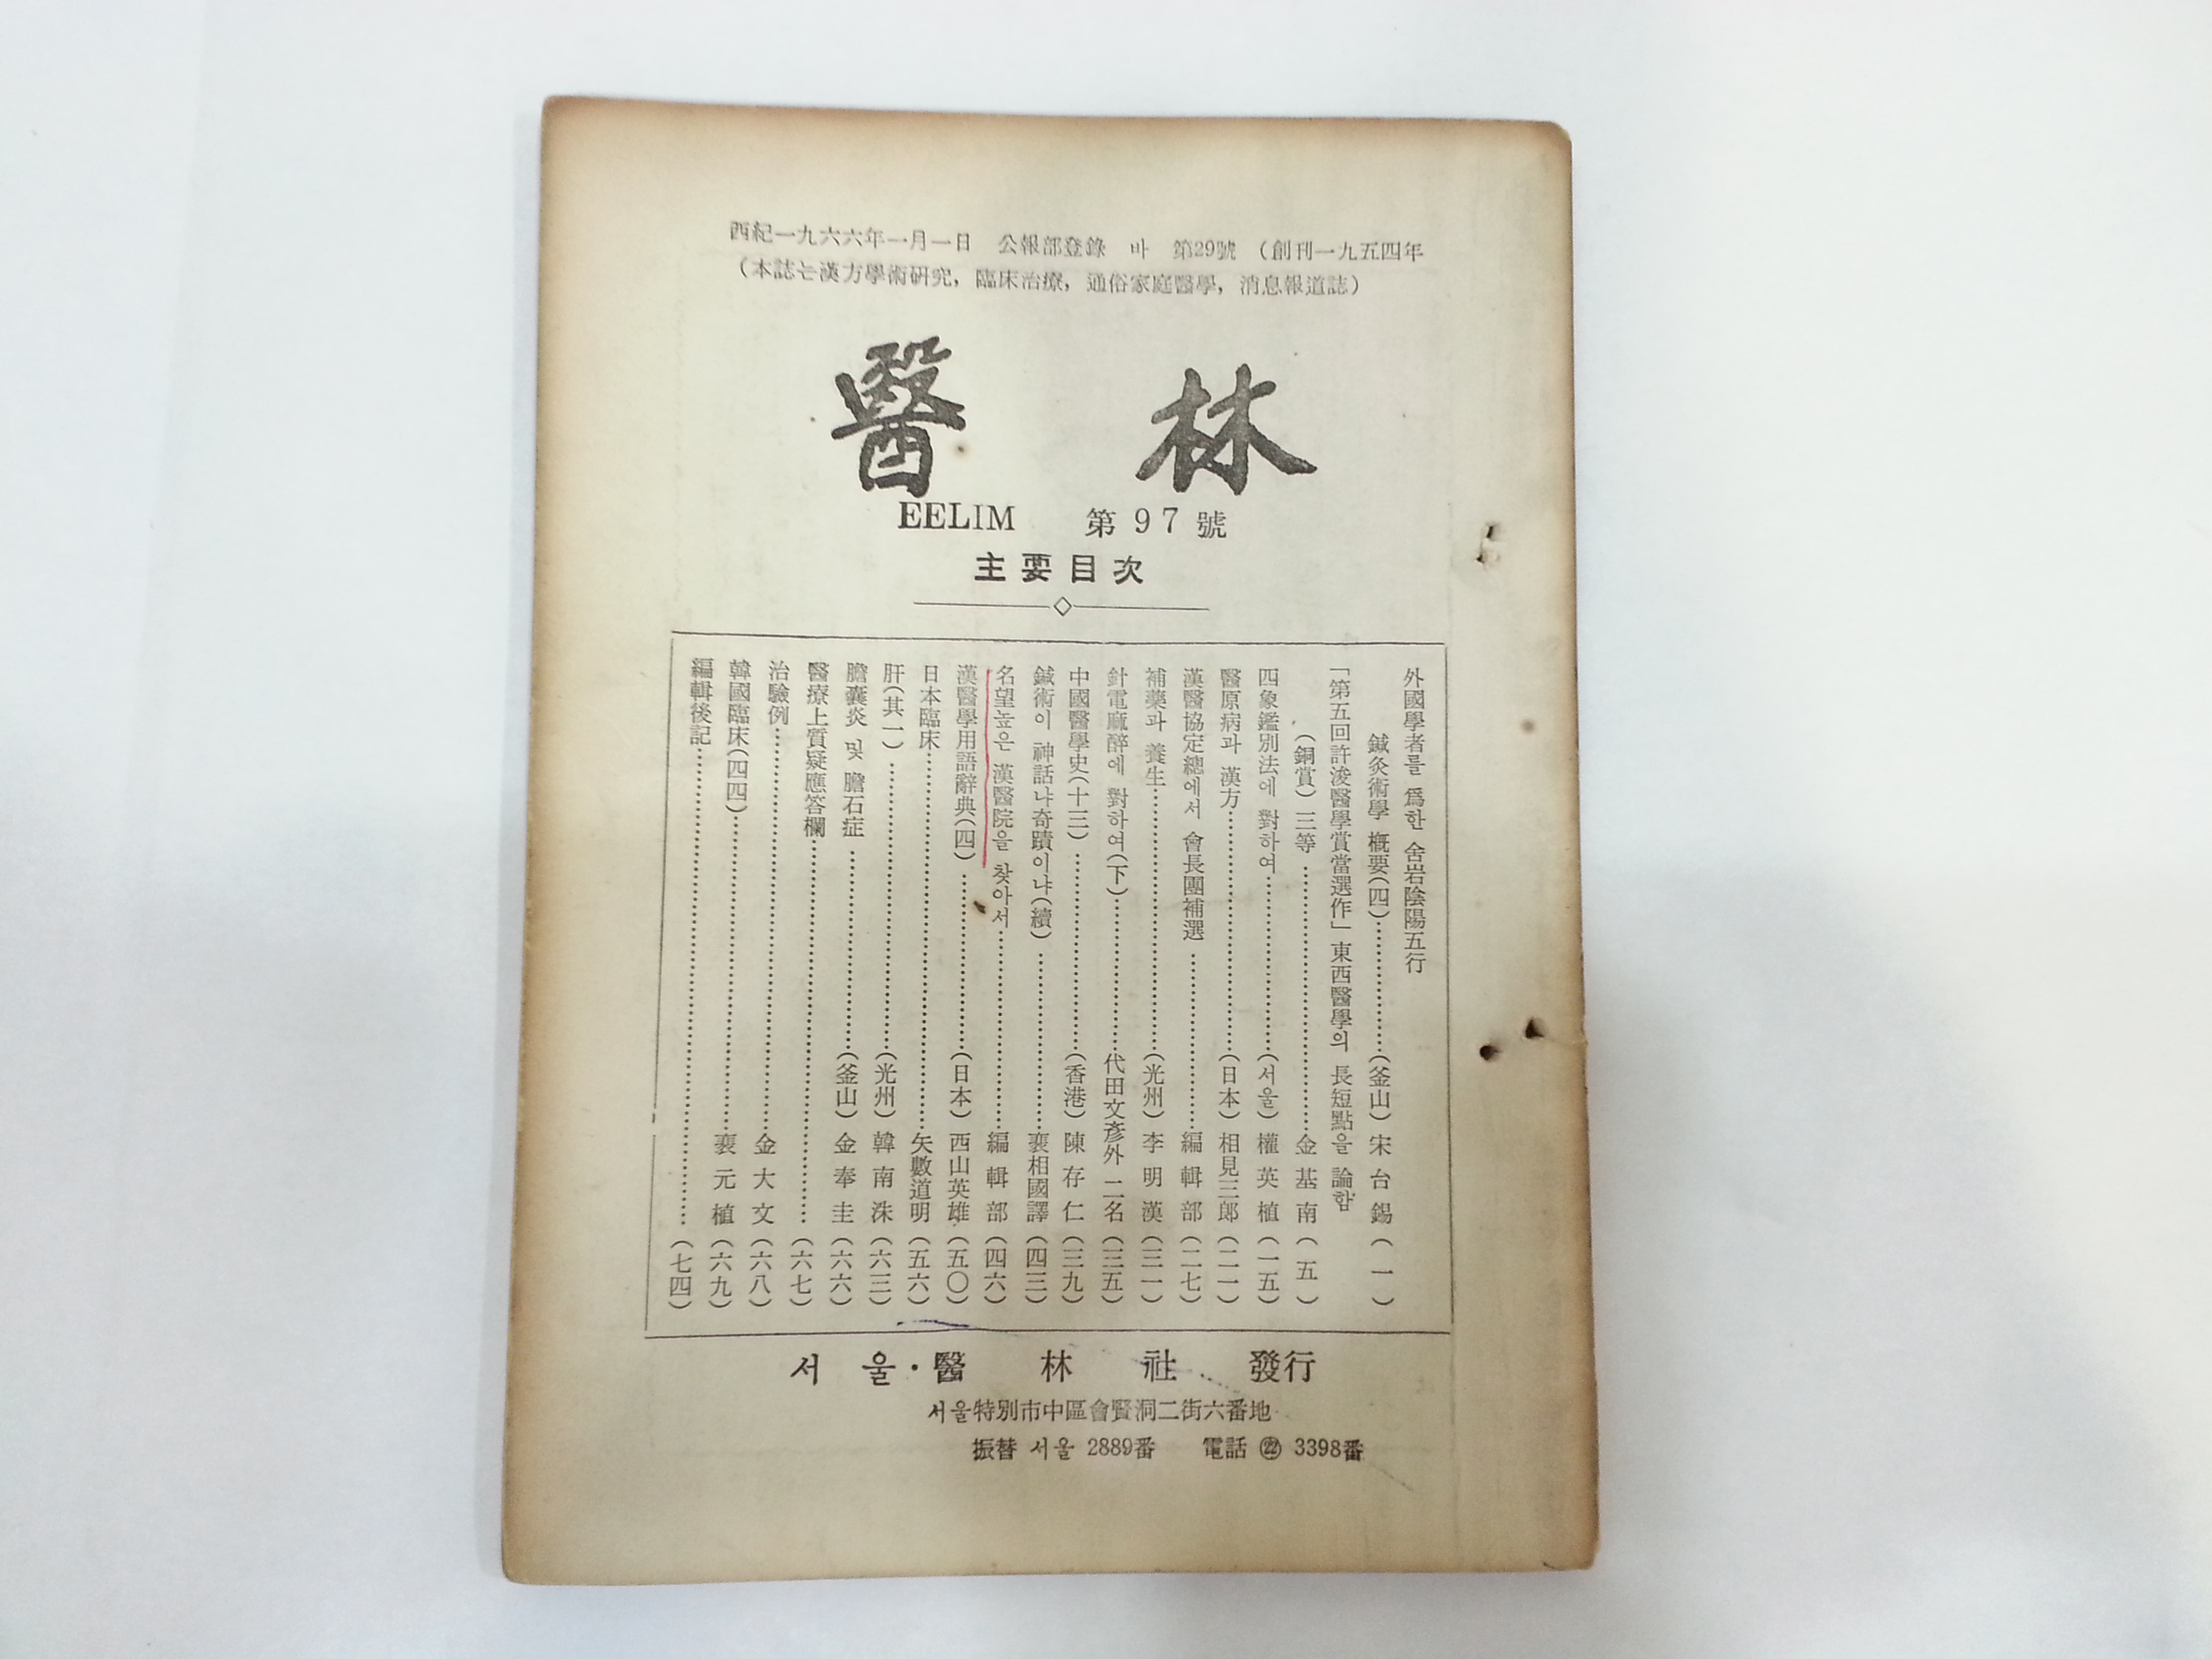 西紀一九六六年一月一日 公報部登錄 바 第29號 (創刊一九五四年
(本誌는漢方學術硏究, 臨床治療, 通俗家庭醫學, 消息報道誌)
醫 林
EELIM 第 97 號
主要目次
外國學者를 爲한 舍岩陰陽五行
鍼灸術學 槪要(四)……………(釜山) 宋台錫 (一)
「第五回許浚醫學賞當選作」東西醫學의 長短點을 論함
(銅賞) 三等……………金基南 (五)
四象鑑別法에 對하여……………(서울) 權英植 (一五)
醫原病과 漢方……………(日本) 相見三郎 (二一)
漢醫協定總에서 會長團補選……………編輯部 (二七)
補藥과 養生……………(光州) 李明漢 (三一)
針電麻醉에 對하여(下)……………代田文彥外 二名 (三五)
中國醫學史(十三)……………(香港) 陳存仁 (三九)
鍼術이 神話냐奇蹟이냐(續)……………裵相國譯 (四三)
名望높은 漢醫院을 찾아서……………編輯部 (四六)
漢醫學用語辭典(四)……………(日本) 西山英雄 (五〇)
日本臨床……………矢數道明 (五六)
肝(其一)……………(光州) 韓南洙 (六三)
膽囊炎 및 膽石症……………(釜山) 金奉圭 (六六)
醫療上質疑應答欄……………(六七)
治驗例……………金大文 (六八)
韓國臨床(四四)……………裵元植 (六九)
編輯後記……………(七四)
서울·醫林社 發行
서울特別市中區會賢洞二街六番地
振替 서울 2889番 電話 ㉒ 3398番